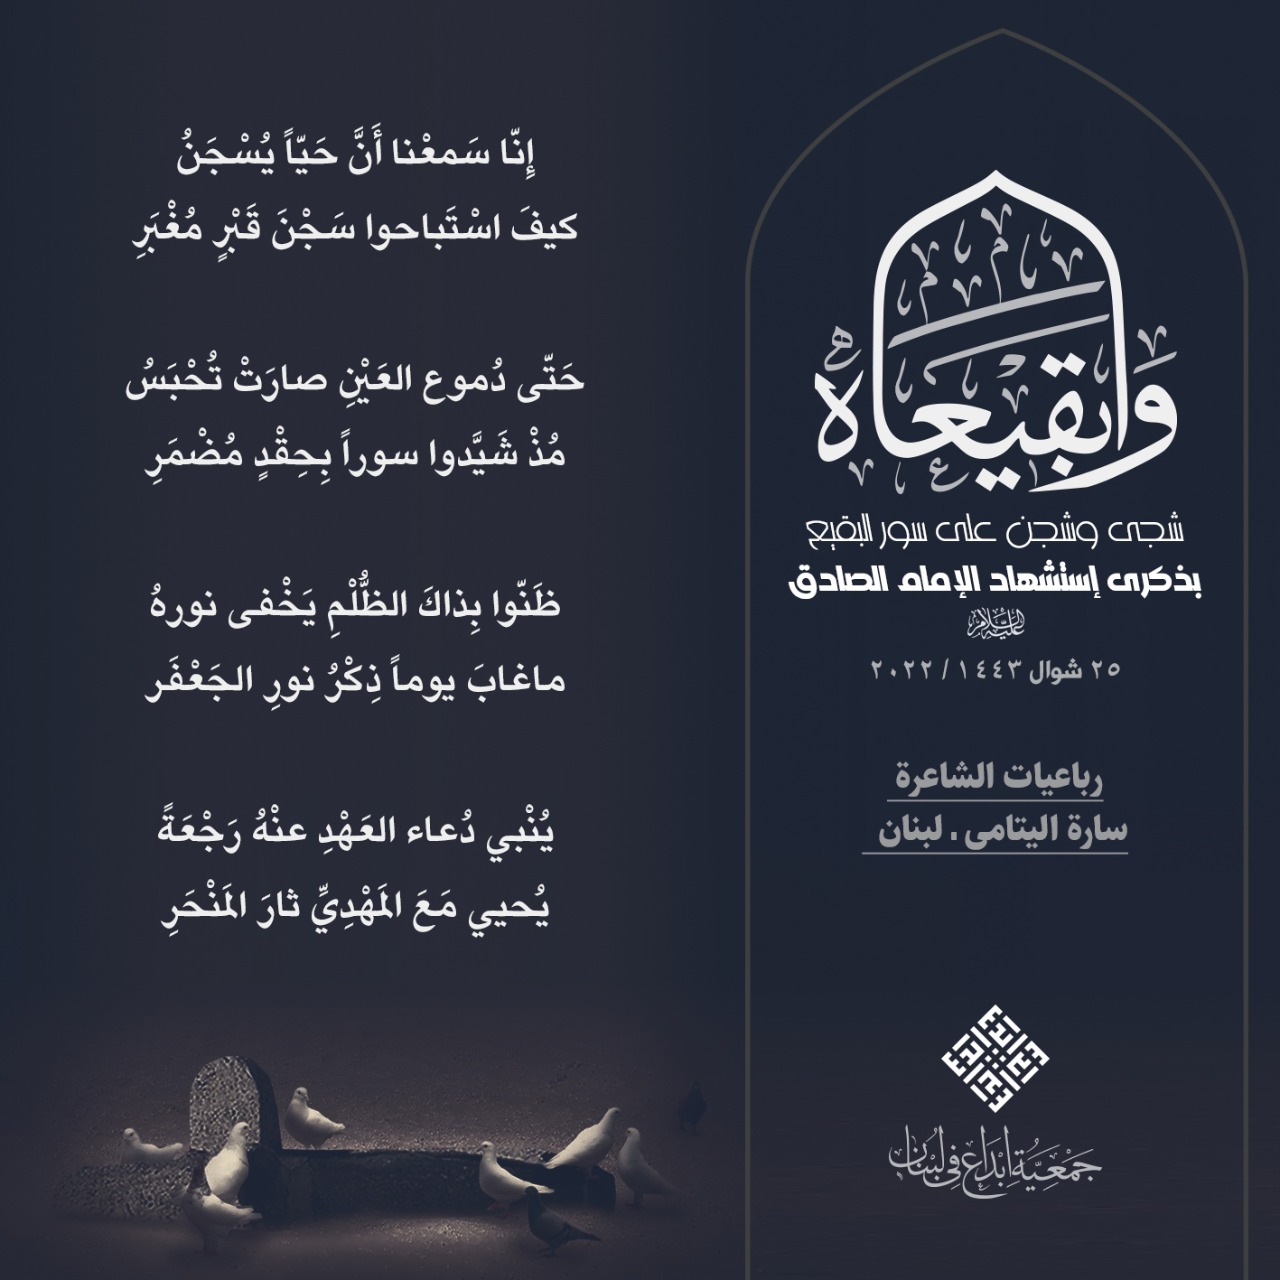 وابقيعاه
شجى وشجن على سور البقيع
بذكرى إستشهاد الإمام الصادق
عليه السلام
٢٥ شوال ١٤٤٣ / ٢٠٢٢
رباعيات الشاعرة
سارة اليتامى . لبنان
إِنّا سَمعْنا أَنَّ حَيّاً يُسْجَنُ
كيفَ اسْتَباحوا سَجْنَ قَبْرٍ مُغْبَرِ
حَتّى دُموع العَيْنِ صارَتْ تُحْبَسُ
مُذْ شَيَّدوا سوراً بِحِقْدٍ مُضْمَرِ
ظَنّوا بِذاكَ الظُّلْمِ يَخْفى نورهُ
ماغابَ يوماً ذِكْرُ نورِ الجَعْفَر
يُنْبي دُعاء العَهْدِ عنْهُ رَجْعَةً
يُحيي مَعَ المَهْدِيِّ ثارَ المَنْحَرِ
جَمْعِيَّة إبْدَاع فِي لبْنان